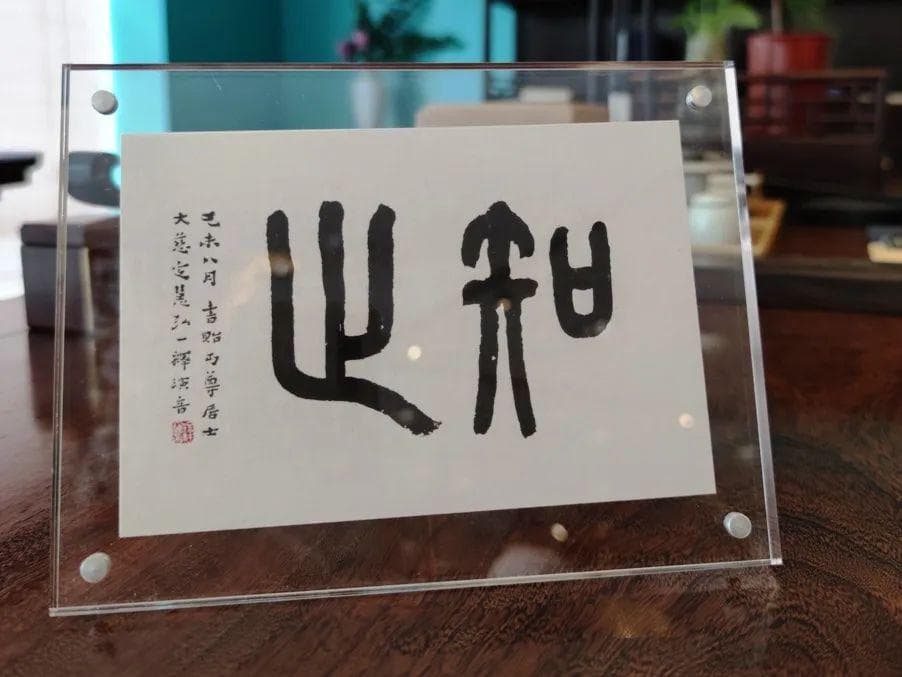 知止
己未八月 書貽丏尊居士
大慈定慧弘一釋演音